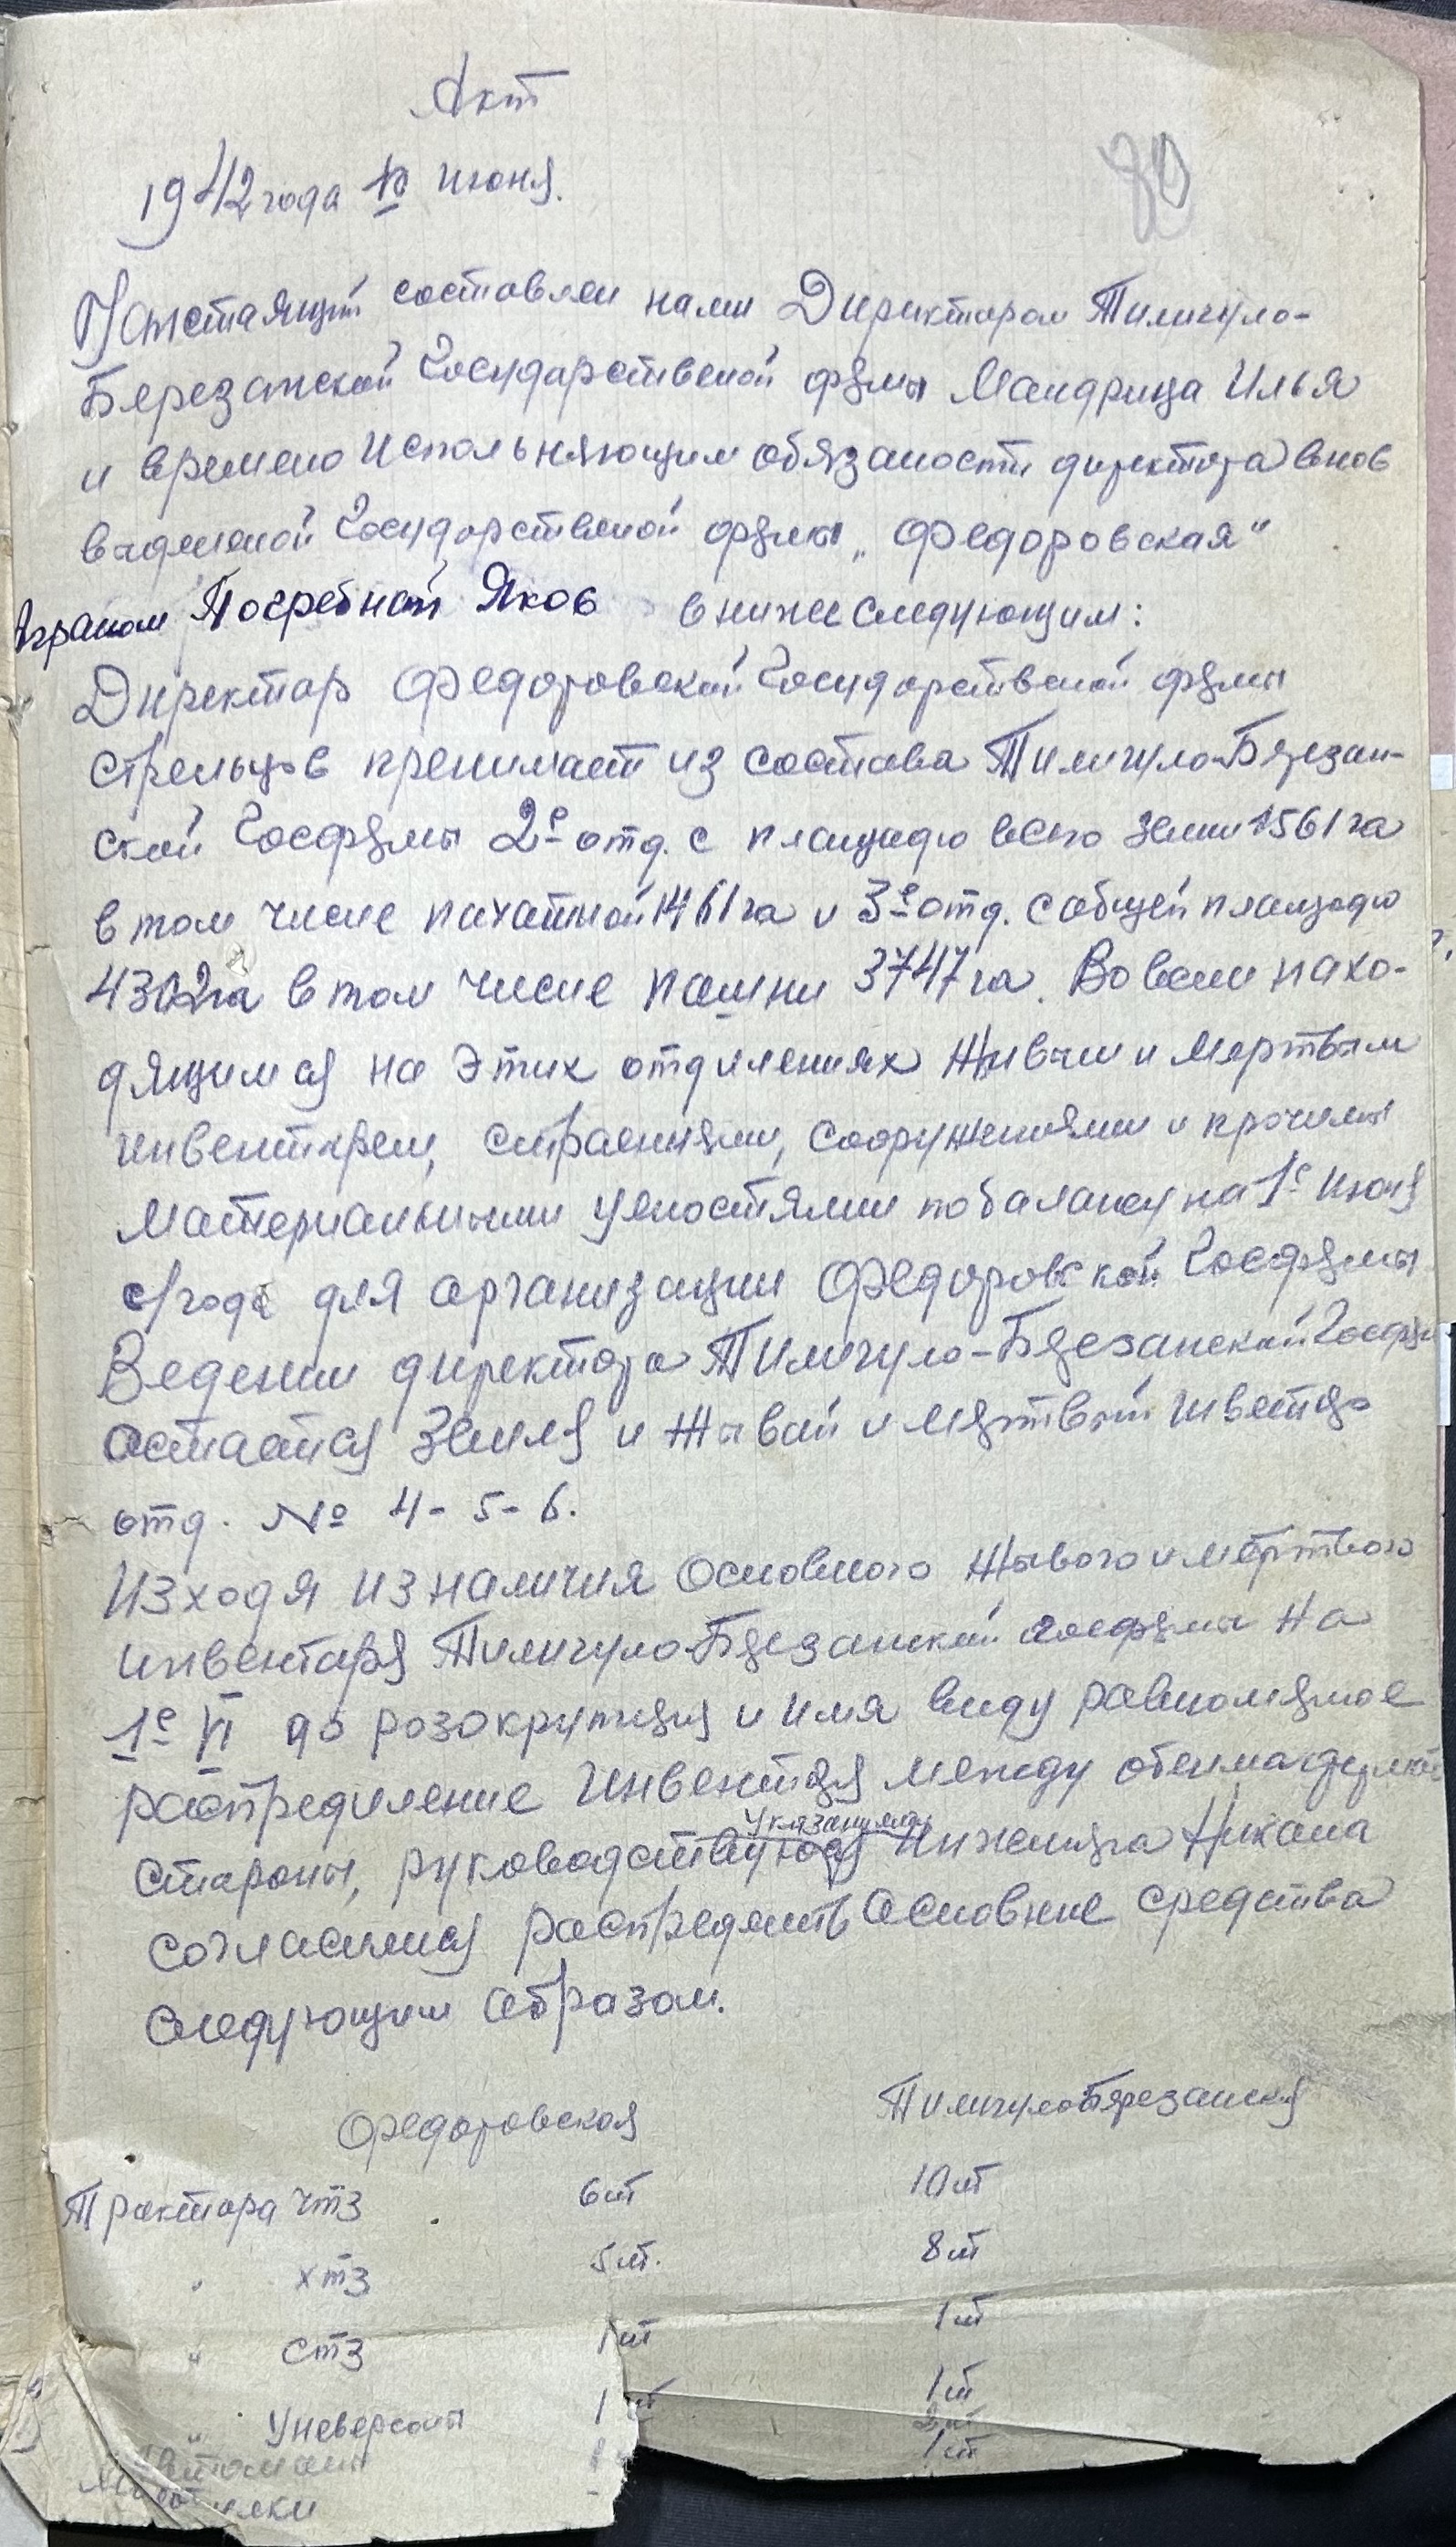 Акт
80
1942 года 10 июня.
Настаящий составлен нами Директором Тилигуло-
Березанской Государственой фермы Мандрица Илья
и времено Испольняющим обязаности директора внов
выделеной Государственой фермы „Федоровская"
Аграном Погребной Яков в нижеследующим:
Директор Федоровской Государственой фермы
Стрельцов пренимает из состава Тилигуло-Березан-
ской Госфермы 2е отд. с площадю всего земли 1561 га
в том числе пахатной 1461 га и 3е отд. с общей площадю
4302 га в том числе пашни 3747 га. Во всем нахо-
дящимся на этих отделениях живым и мертвым
инвентарем, строениями, сооружениями и прочими
материальными ценостями по балансу на 1е июня
с/года для организации Федоровской Госфермы.
Ведении директора Тилигуло-Березанской Госферм
остается земля и жывой и мертвый инвентар
отд. № 4-5-6.
Изходя из наличия основного жывого и мертвого
инвентаря Тилигуло-Березанской госфермы на
1е VI до и имя виду равномерное
распределение инвентаря между обеима фермам
указаниями
стороны, руководствуюсь Инженера Никола
согласились распределить основние средства
следующим образом.
Федоровская ТилигулоБерезанская
Трактора ЧТЗ 6 шт 10 шт
" ХТЗ 5 шт. 8 шт
" СТЗ 1 шт 1 шт
" Универсалы 1 шт 1 шт
2 шт
1 шт